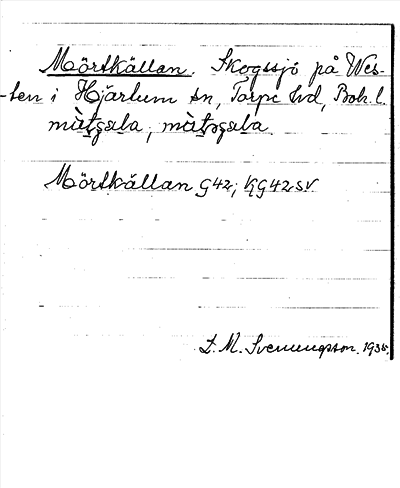 Mörtkällan. Skogssjö på Wes-
-ten i Hjärtum sn, Torpe hd, Boh. l.
Mörtkällan G42; KG42SV
L. M. Svenungsson. 1935.